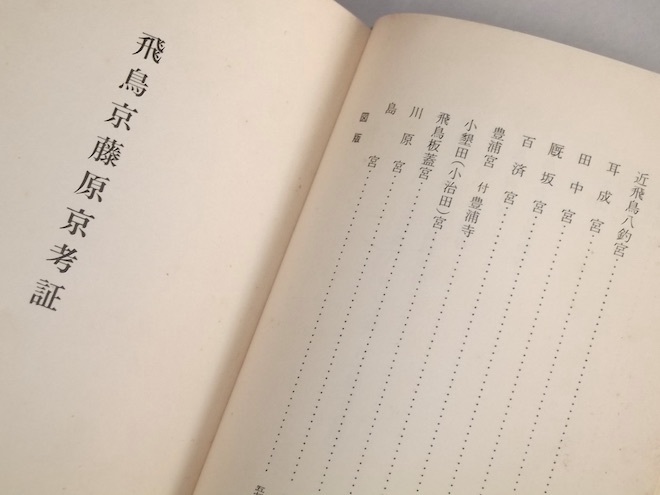 近飛鳥八釣宮
耳成宮
田中宮
厩坂宮
百済宮
豊浦宮 付豊浦寺
小墾田(小治田)宮
飛鳥板蓋宮
川原宮
島宮
図版
飛鳥京藤原京考証